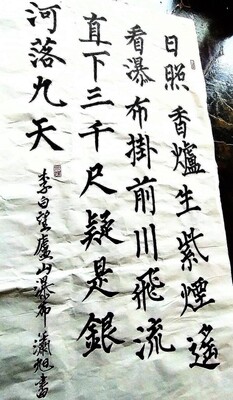 日照香爐生紫煙遙
看瀑布掛前川飛流
直下三千尺疑是銀
河落九天
李白望廬山瀑布瀟旭書